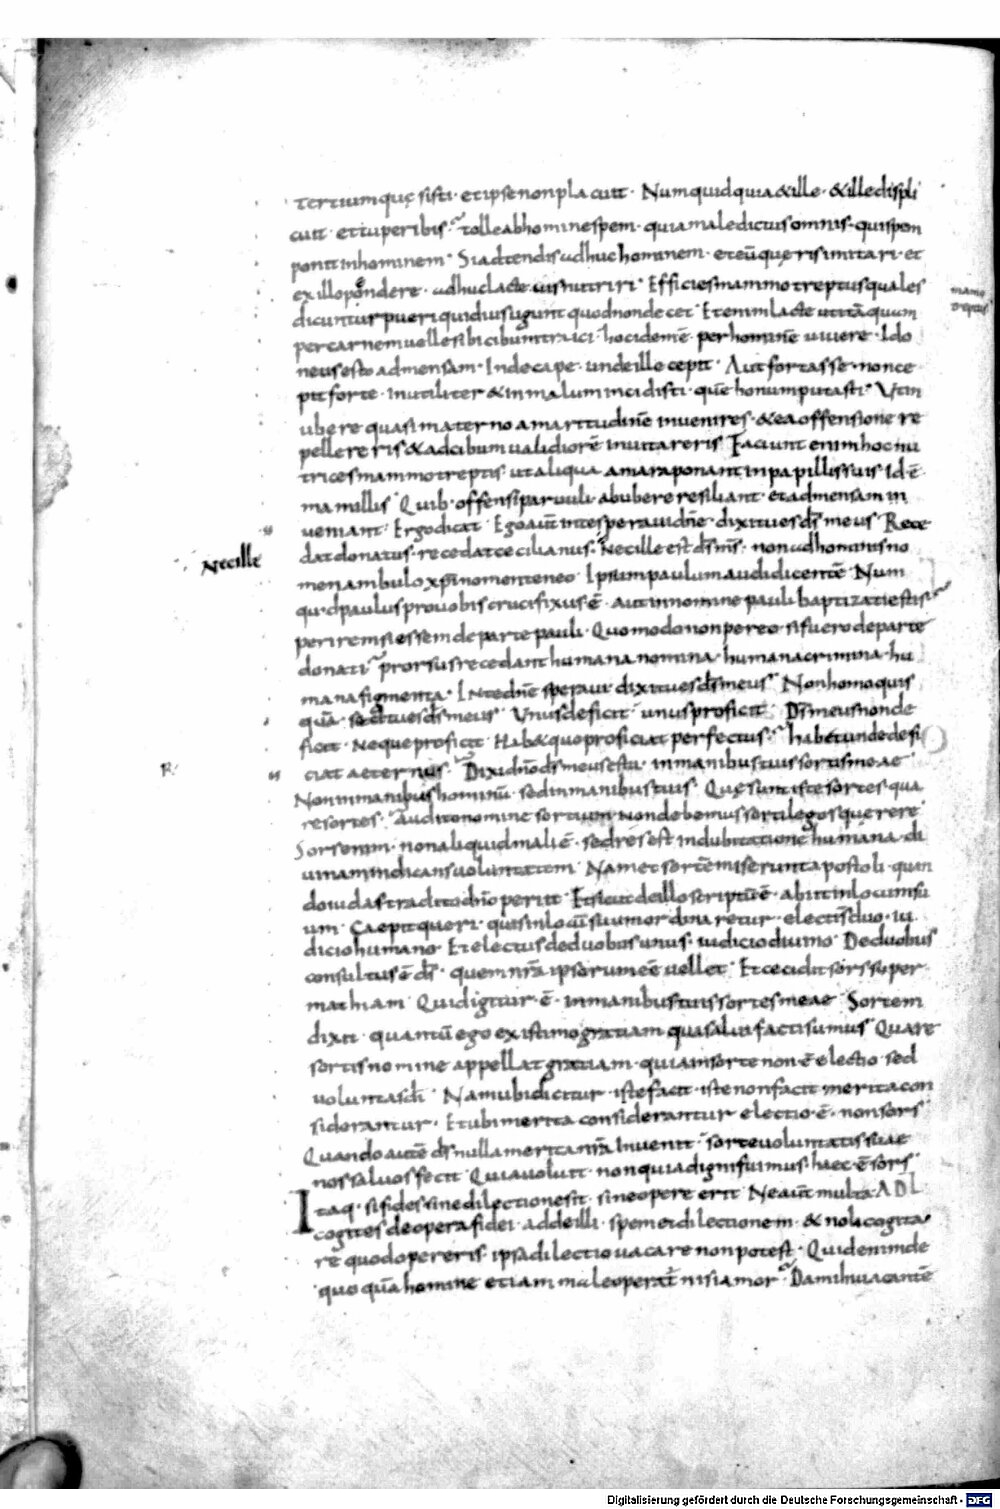 tertiumque sisti· et ipse non placuit· Numquid quia & ille· & ille displi
cuit· et tu peribis· Tolle ab homine spem· quia maledictus omnis· qui spem
ponit in homine· Si adtendis adhuc hominem· et eum queris imitari· et
ex illo pendere· adhuc lacte vis nutriri· Efficies mammotreptus quales
mamo
treptus
dicuntur pueri qui diu sugunt quod non decet· Etenim lacte
per carnem velle sibi cibum traici· hoc idem ē· per hominē vivere· Ido
neus esto ad mensam· Inde cape· unde ille cepit· Aut fortasse non ce
pit forte· inutiliter & in malum incidisti· quē bonum putasti· Ut in
ubere quasi materno amaritudinē invenires· & ea offensione re
pellereris & ad cibum validiorē invitareris Faciunt enim hoc nu
trices mammotreptis ut aliqua amara ponant in papillis suis id ē·
mamillis Quib· offensi parvuli ab ubere resiliant· et ad mensam in
veniant· Ergo dicat Ego aūt in te speravi dn̄e· dixi tu es ds̄ meus Rece
dat donatus· recedat cecilianus· Nec ille est ds̄ ms̄· non ad hominis no
Nec ille
men ambulo xp̄i nomen teneo Ipsum paulum audi dicentē Num
quid paulus pro vobis crucifixus ē· Aut in nomine pauli baptizati estis
perirem si essem de parte pauli· Quomodo non pereo· si fuero de parte
donati prorsus recedant humana nomina· humana crimina· hu
mana figmenta· In te dn̄e speravi dixi tu es ds̄ meus Non homo quis
quā· sed tu es ds̄ meus Unus deficit unus proficit Ds̄ meus non de
ficit· neque proficit Hab& quo proficiat perfectus· habet unde defi
ciat aeternus· Dixi dn̄o ds̄ meus es tu· in manibus tuis sortis meae
R
Non in manibus hominū· sed in manibus tuis· Quę sunt iste sortes qua
re sortes· Audito nomine sortium non debemus sortilegos querere
Sors enim· non aliquid mali ē· sed res est in dubitatione humana· di
vinam indicans voluntatem Nam et sortē miserunt apostoli· quan
do iudas tradito dn̄o periit· Et sicut de illo scriptū ē· abiit in locum su
um· Caepit queri· quis in locū suum ordinaretur· electi s duo· iu
dicio humano Et electus de duobus unus· iudicio divino De duobus
consultus ē ds̄· quem nrā ipsorum eē vellet· Et cecidit sors super
mathiam Quid igitur ē· in manibus tuis sortes meae Sortem
dixit· quantū ego existimo gratiam qua salvi facti sumus Quare
sortis nomine appellat gratiam· quia in sorte non ē electio· sed
voluntas di Nam ubi dicitur· iste facit· iste non facit merita con
siderantur· Et ubi merita considerantur electio ē· non sors
Quando autē ds̄ nulla merita nrā invenit· sorte voluntatis suae
nos salvos fecit Quia voluit· non quia digni fuimus· haec ē sors
Itaq· si fides sine dilectione sit· sine opere erit Ne aūt multa
cogites de opera fidei· adde illi· spem et dilectionem· & noli cogita
re quod opereris· ipsa dilectio vacare non potest· Quid enim de
quo quā homine etiam male operat̄ nisi amor Da mihi vacantē